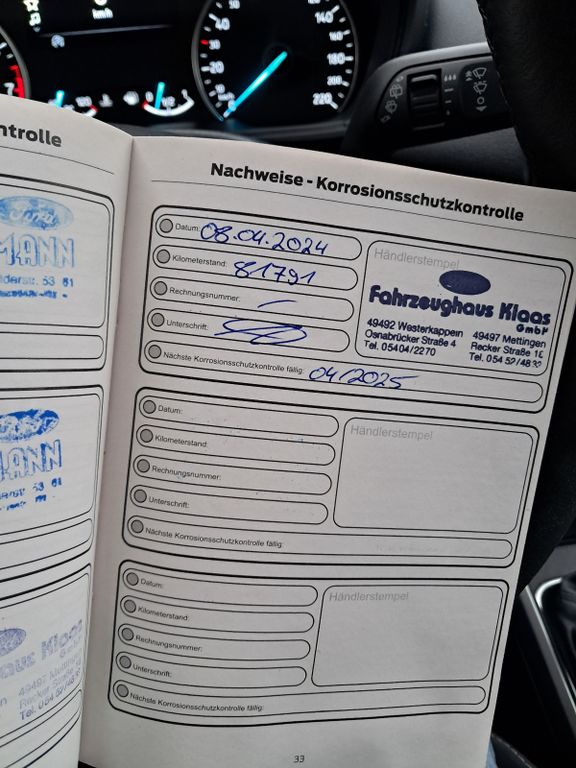 km/h
40
30
20
10
0
140
160
180
200
220
7
ntrolle
MANN
53 61
MANN
53 61
aus Klaas
49497 Mettingen
Recker Straße
Tel. 054 52/48
Nachweise - Korrosionsschutzkontrolle
Datum: 08.04.2024
Kilometerstand: 81791
Rechnungsnummer: -
Unterschrift:
Nächste Korrosionsschutzkontrolle fällig: 04/2025
Händlerstempel
Fahrzeughaus Klaas
GmbH
49492 Westerkappeln
Osnabrücker Straße 4
Tel. 05404/2270
49497 Mettingen
Recker Straße
Tel. 054 52/48
Datum:
Kilometerstand:
Rechnungsnummer:
Unterschrift:
Nächste Korrosionsschutzkontrolle fällig:
Händlerstempel
Datum:
Kilometerstand:
Rechnungsnummer:
Unterschrift:
Nächste Korrosionsschutzkontrolle fällig:
Händlerstempel
33